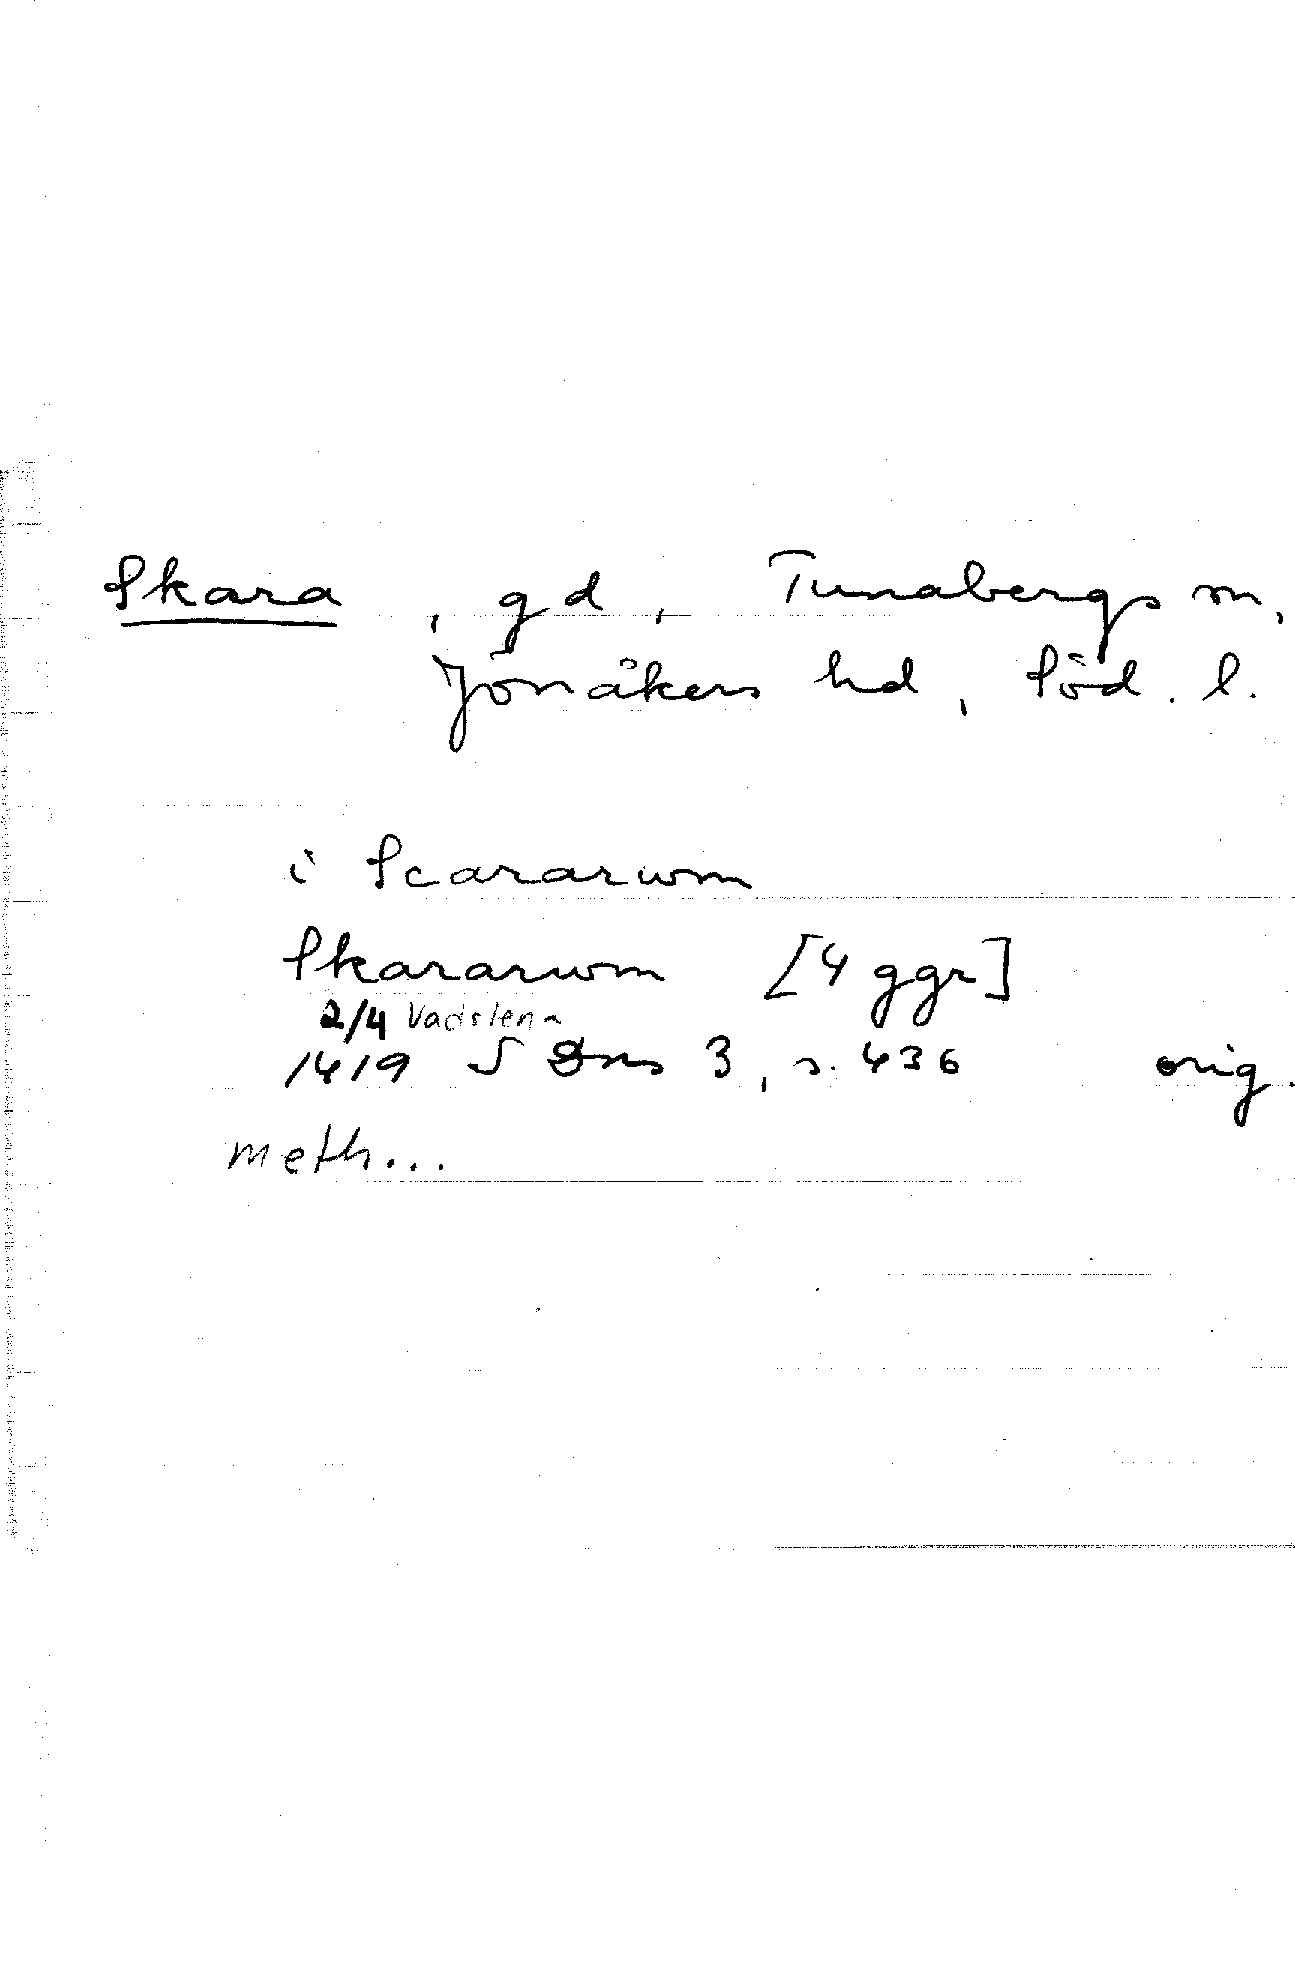 Skara, gd, Tunabergs sn,
Jönåkers hd, Söd. l.
i Scararwm
Skararwm [4 ggr]
2/4 Vadstena
1419 SDns 3, s. 436 orig.
meth...